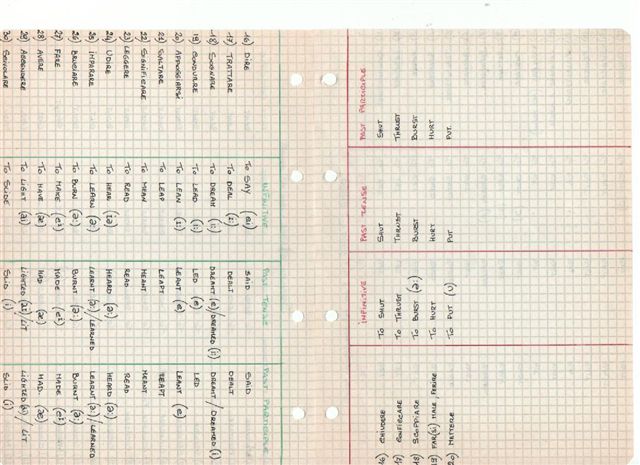 INFINITIVE PAST TENSE PAST PARTICIPLE
16) DIRE TO SAY (ei) SAID SAID
17) TRATTARE TO DEAL (i:) DEALT DEALT
18) SOGNARE TO DREAM (i:) DREAMT (e) / DREAMED (i:) DREAMT / DREAMED (i)
19) CONDURRE TO LEAD (i:) LED (e) LED
20) APPOGGIARSI TO LEAN (i:) LEANT (e) LEANT (e)
21) SALTARE TO LEAP LEAPT LEAPT
22) SIGNIFICARE TO MEAN MEANT MEANT
23) LEGGERE TO READ READ READ
24) UDIRE TO HEAR (iə) HEARD (ə) HEARD (ə)
25) IMPARARE TO LEARN (ə:) LEARNT (ə:) / LEARNED LEARNT (ə:) / LEARNED
26) BRUCIARE TO BURN (ə:) BURNT (ə:) BURNT (ə:)
27) FARE TO MAKE (ei) MADE (ei) MADE (ei)
28) AVERE TO HAVE (æ) HAD (æ) HAD (æ)
29) ACCENDERE TO LIGHT (ai) LIGHTED (ai) / LIT LIGHTED (ai) / LIT
30) SCIVOLARE TO SLIDE SLID (i) SLID (i)
INFINITIVE PAST TENSE PAST PARTICIPLE
16) CHIUDERE TO SHUT SHUT SHUT
17) CONFICCARE TO THRUST THRUST THRUST
18) SCOPPIARE TO BURST (ə:) BURST BURST
19) FAR(SI) MALE, FERIRE TO HURT HURT HURT
20) METTERE TO PUT (u) PUT PUT